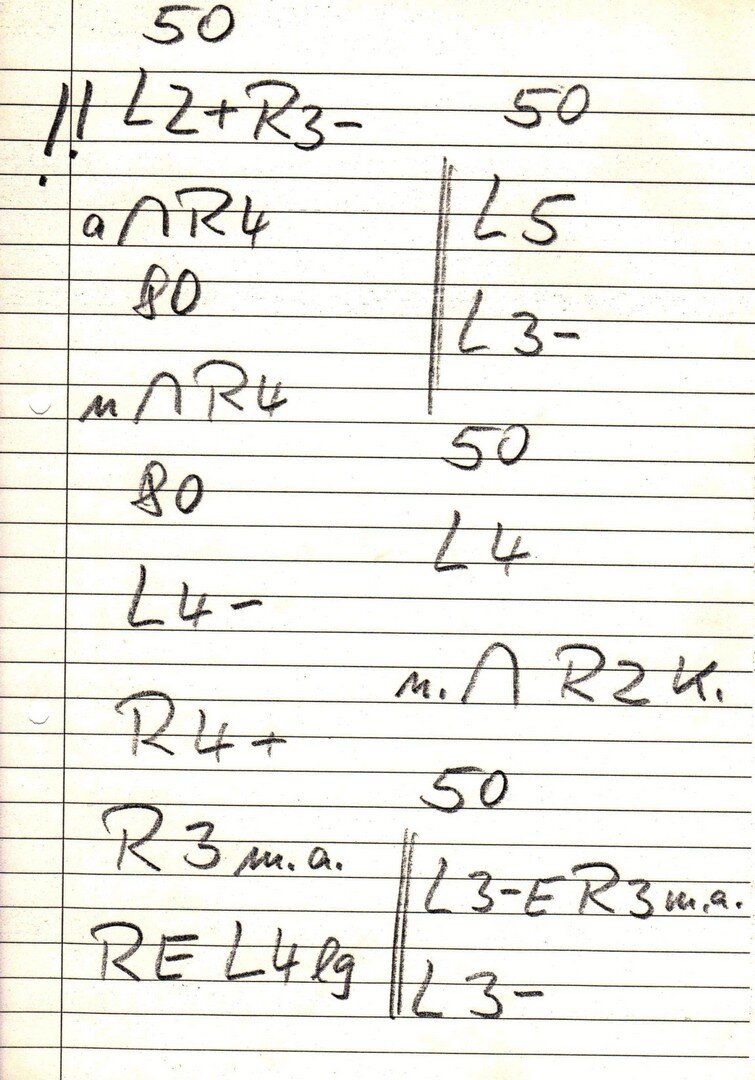 50
!! L2+R3-
a∩R4
80
n∩R4
80
L4-
R4+
R3 m.a.
RE L4 lg
50
L5
L3-
50
L4
n.∩ R2 K.
50
L3-E R3 m.a.
L3-